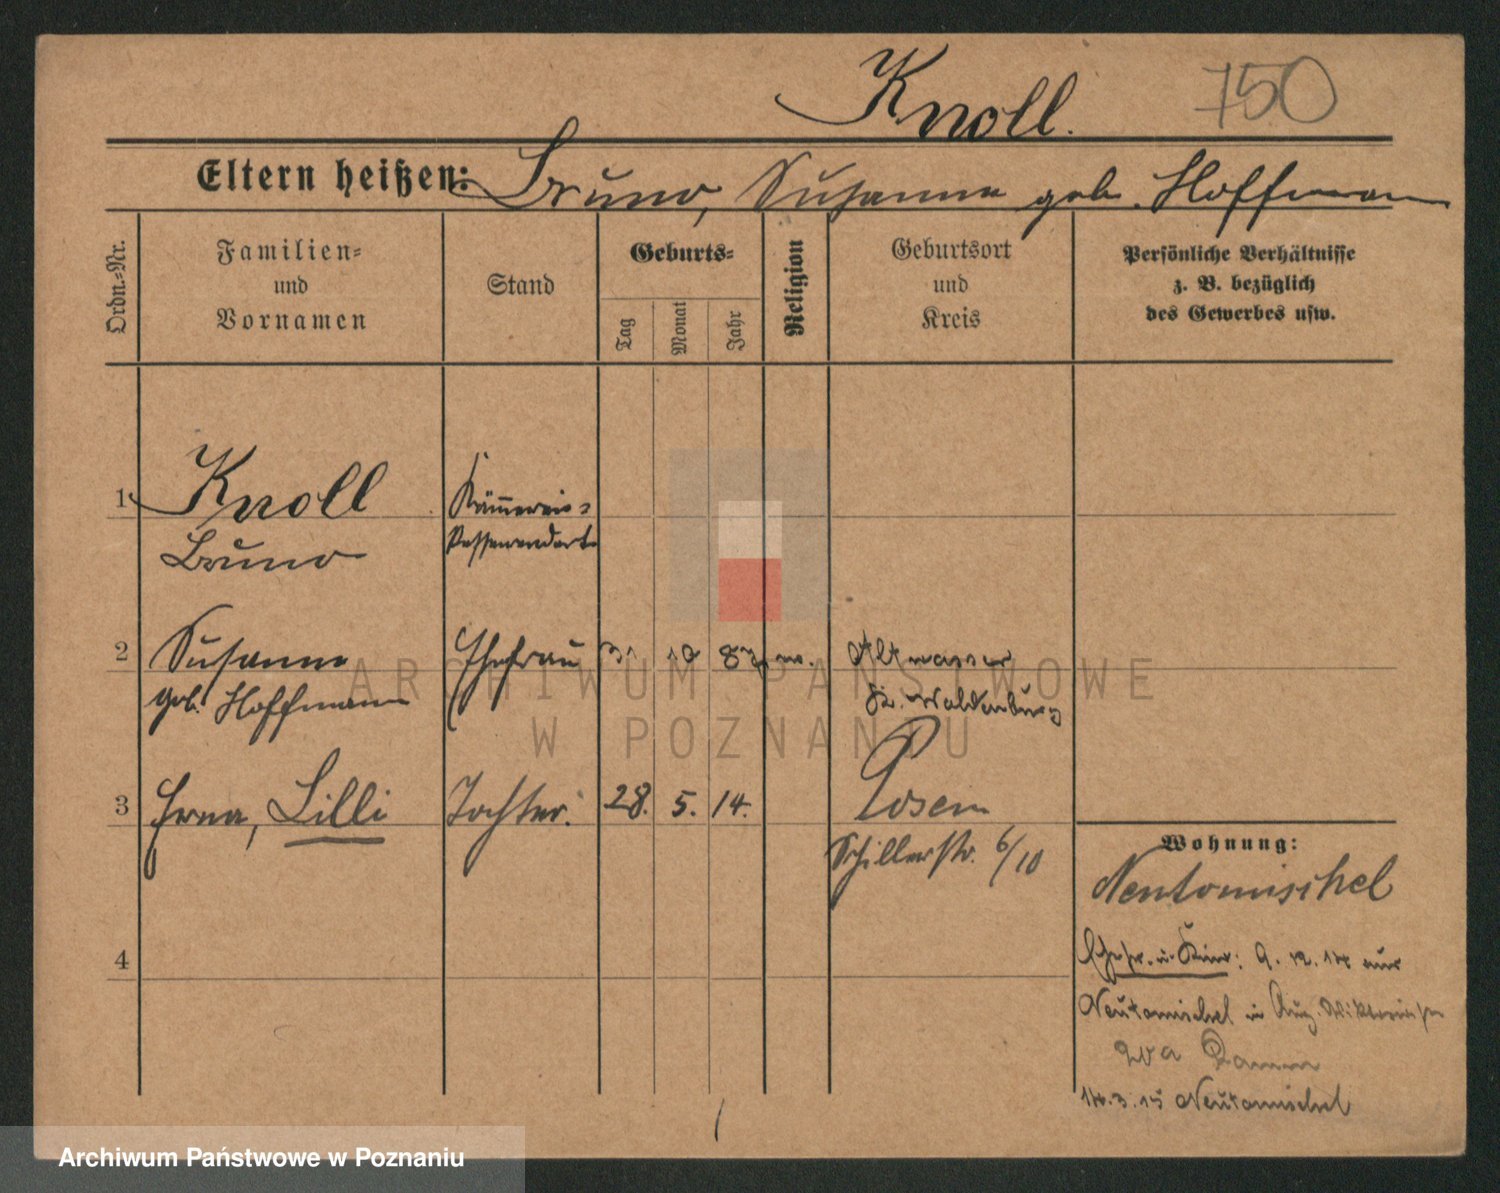 Knoll. 750
Eltern heißen: Bruno, Susanna geb. Hoffmann
Ordn.=Nr.
Familien=
und
Vornamen
Stand
Geburts=
Tag
Monat
Jahr
Religion
Geburtsort
und
Kreis
Persönliche Verhältnisse
z. B. bezüglich
des Gewerbes usw.
1 Knoll
Bruno
Kämmerei=
2 Susanna Ehefrau 10 Altwasser
geb. Hoffmann Waldenburg
3 Erna, Lilli Tochter. 28. 5. 14. Posen
Schillerstr. 6/10
4
Wohnung:
Neutomischel
Neutomischel in Aug.
14.3.15 Neutomischel
ARCHIWUM PAŃSTWOWE
W POZNANIU
Archiwum Państwowe w Poznaniu